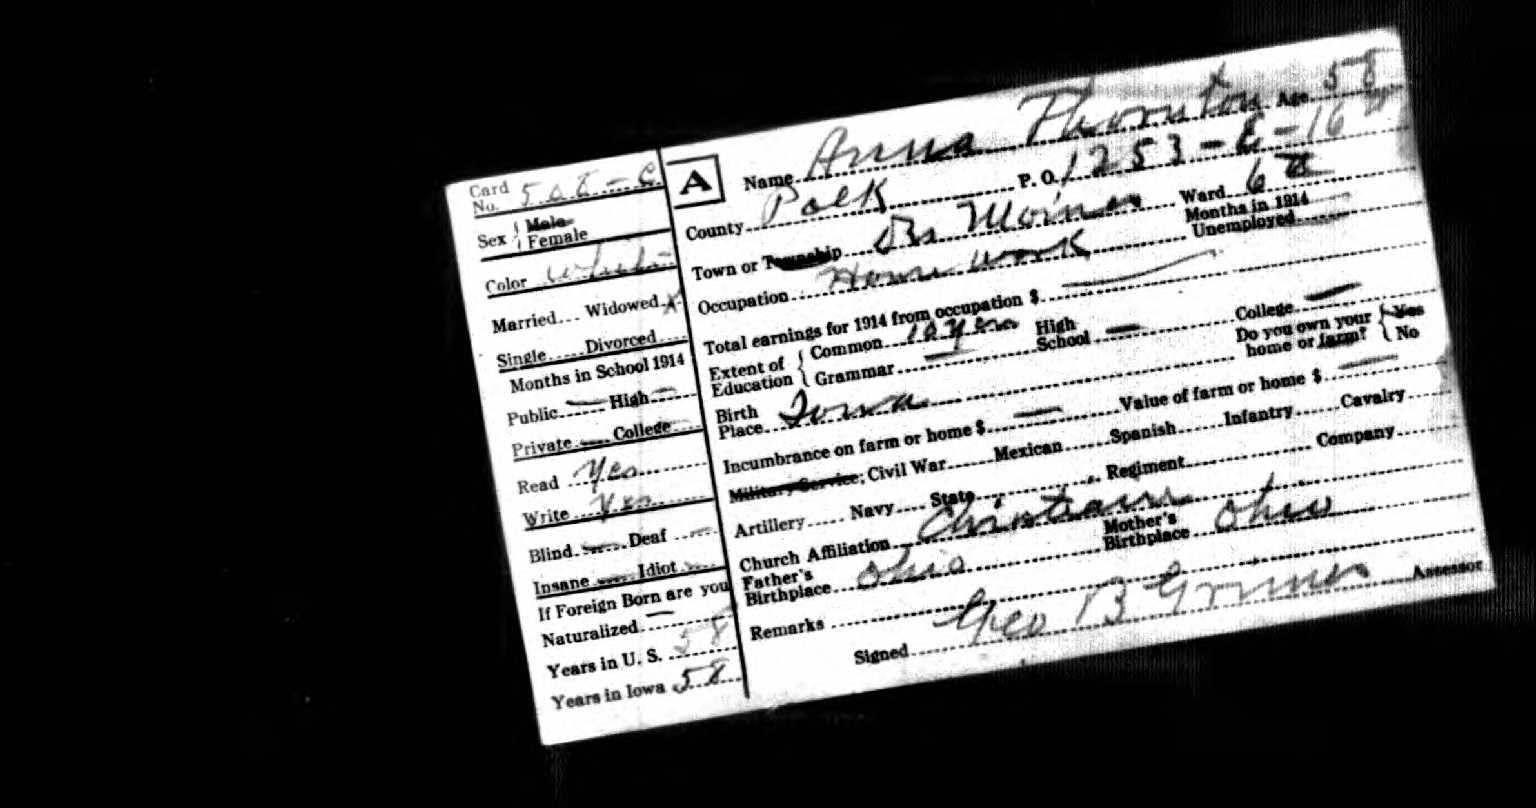 Card No. 508-C
Sex { Male Female
Color White
Married.... Widowed X
Single...... Divorced.....
Months in School 1914
Public — High —
Private — College —
Read Yes
Write Yes
Blind — Deaf —
Insane — Idiot —
If Foreign Born are you
Naturalized —
Years in U. S. 58
Years in Iowa 58
A
Name Anna Thornton Age 58
County Polk P. O. 1253-E-16th
Town or Township Des Moines Ward 6th
Occupation House work Months in 1914 Unemployed
Total earnings for 1914 from occupation $ —
Extent of Education { Common 10 yrs High School — College —
Grammar — Do you own your home or farm? { Yes No
Birth Place Iowa
Incumbrance on farm or home $ — Value of farm or home $ —
Military Service: Civil War...... Mexican...... Spanish...... Infantry...... Cavalry......
Artillery..... Navy.... State.... Regiment.... Company....
Church Affiliation Christian
Father's Birthplace Ohio Mother's Birthplace Ohio
Remarks
Signed Geo B Grimes Assessor